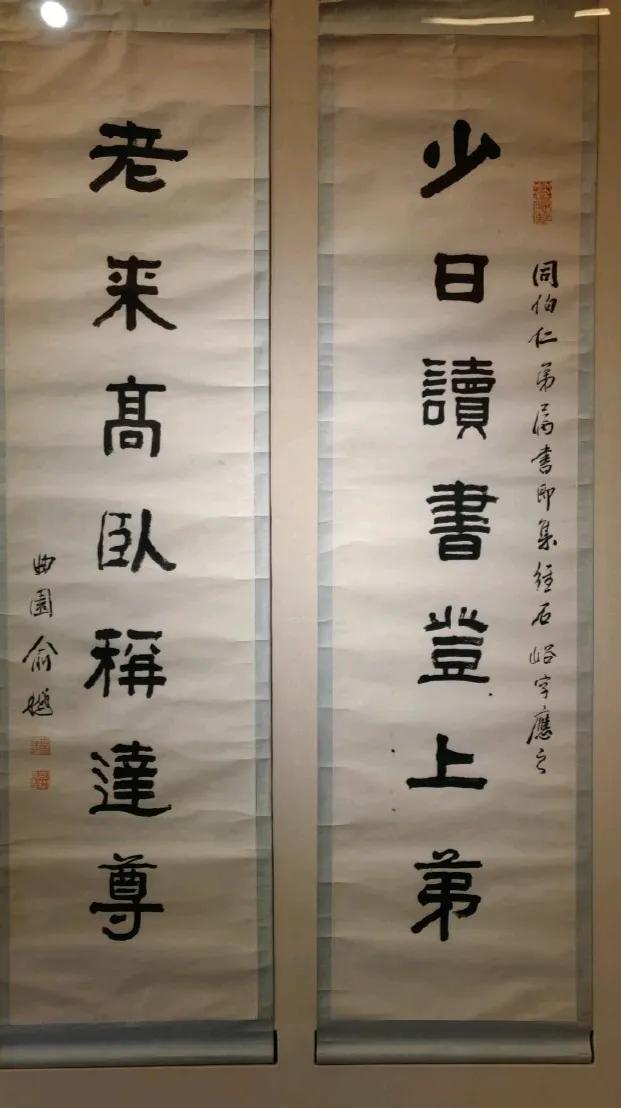 少日讀書登上弟
同伯仁弟屬書即集經石峪字應之
老来高臥稱達尊
曲園俞樾